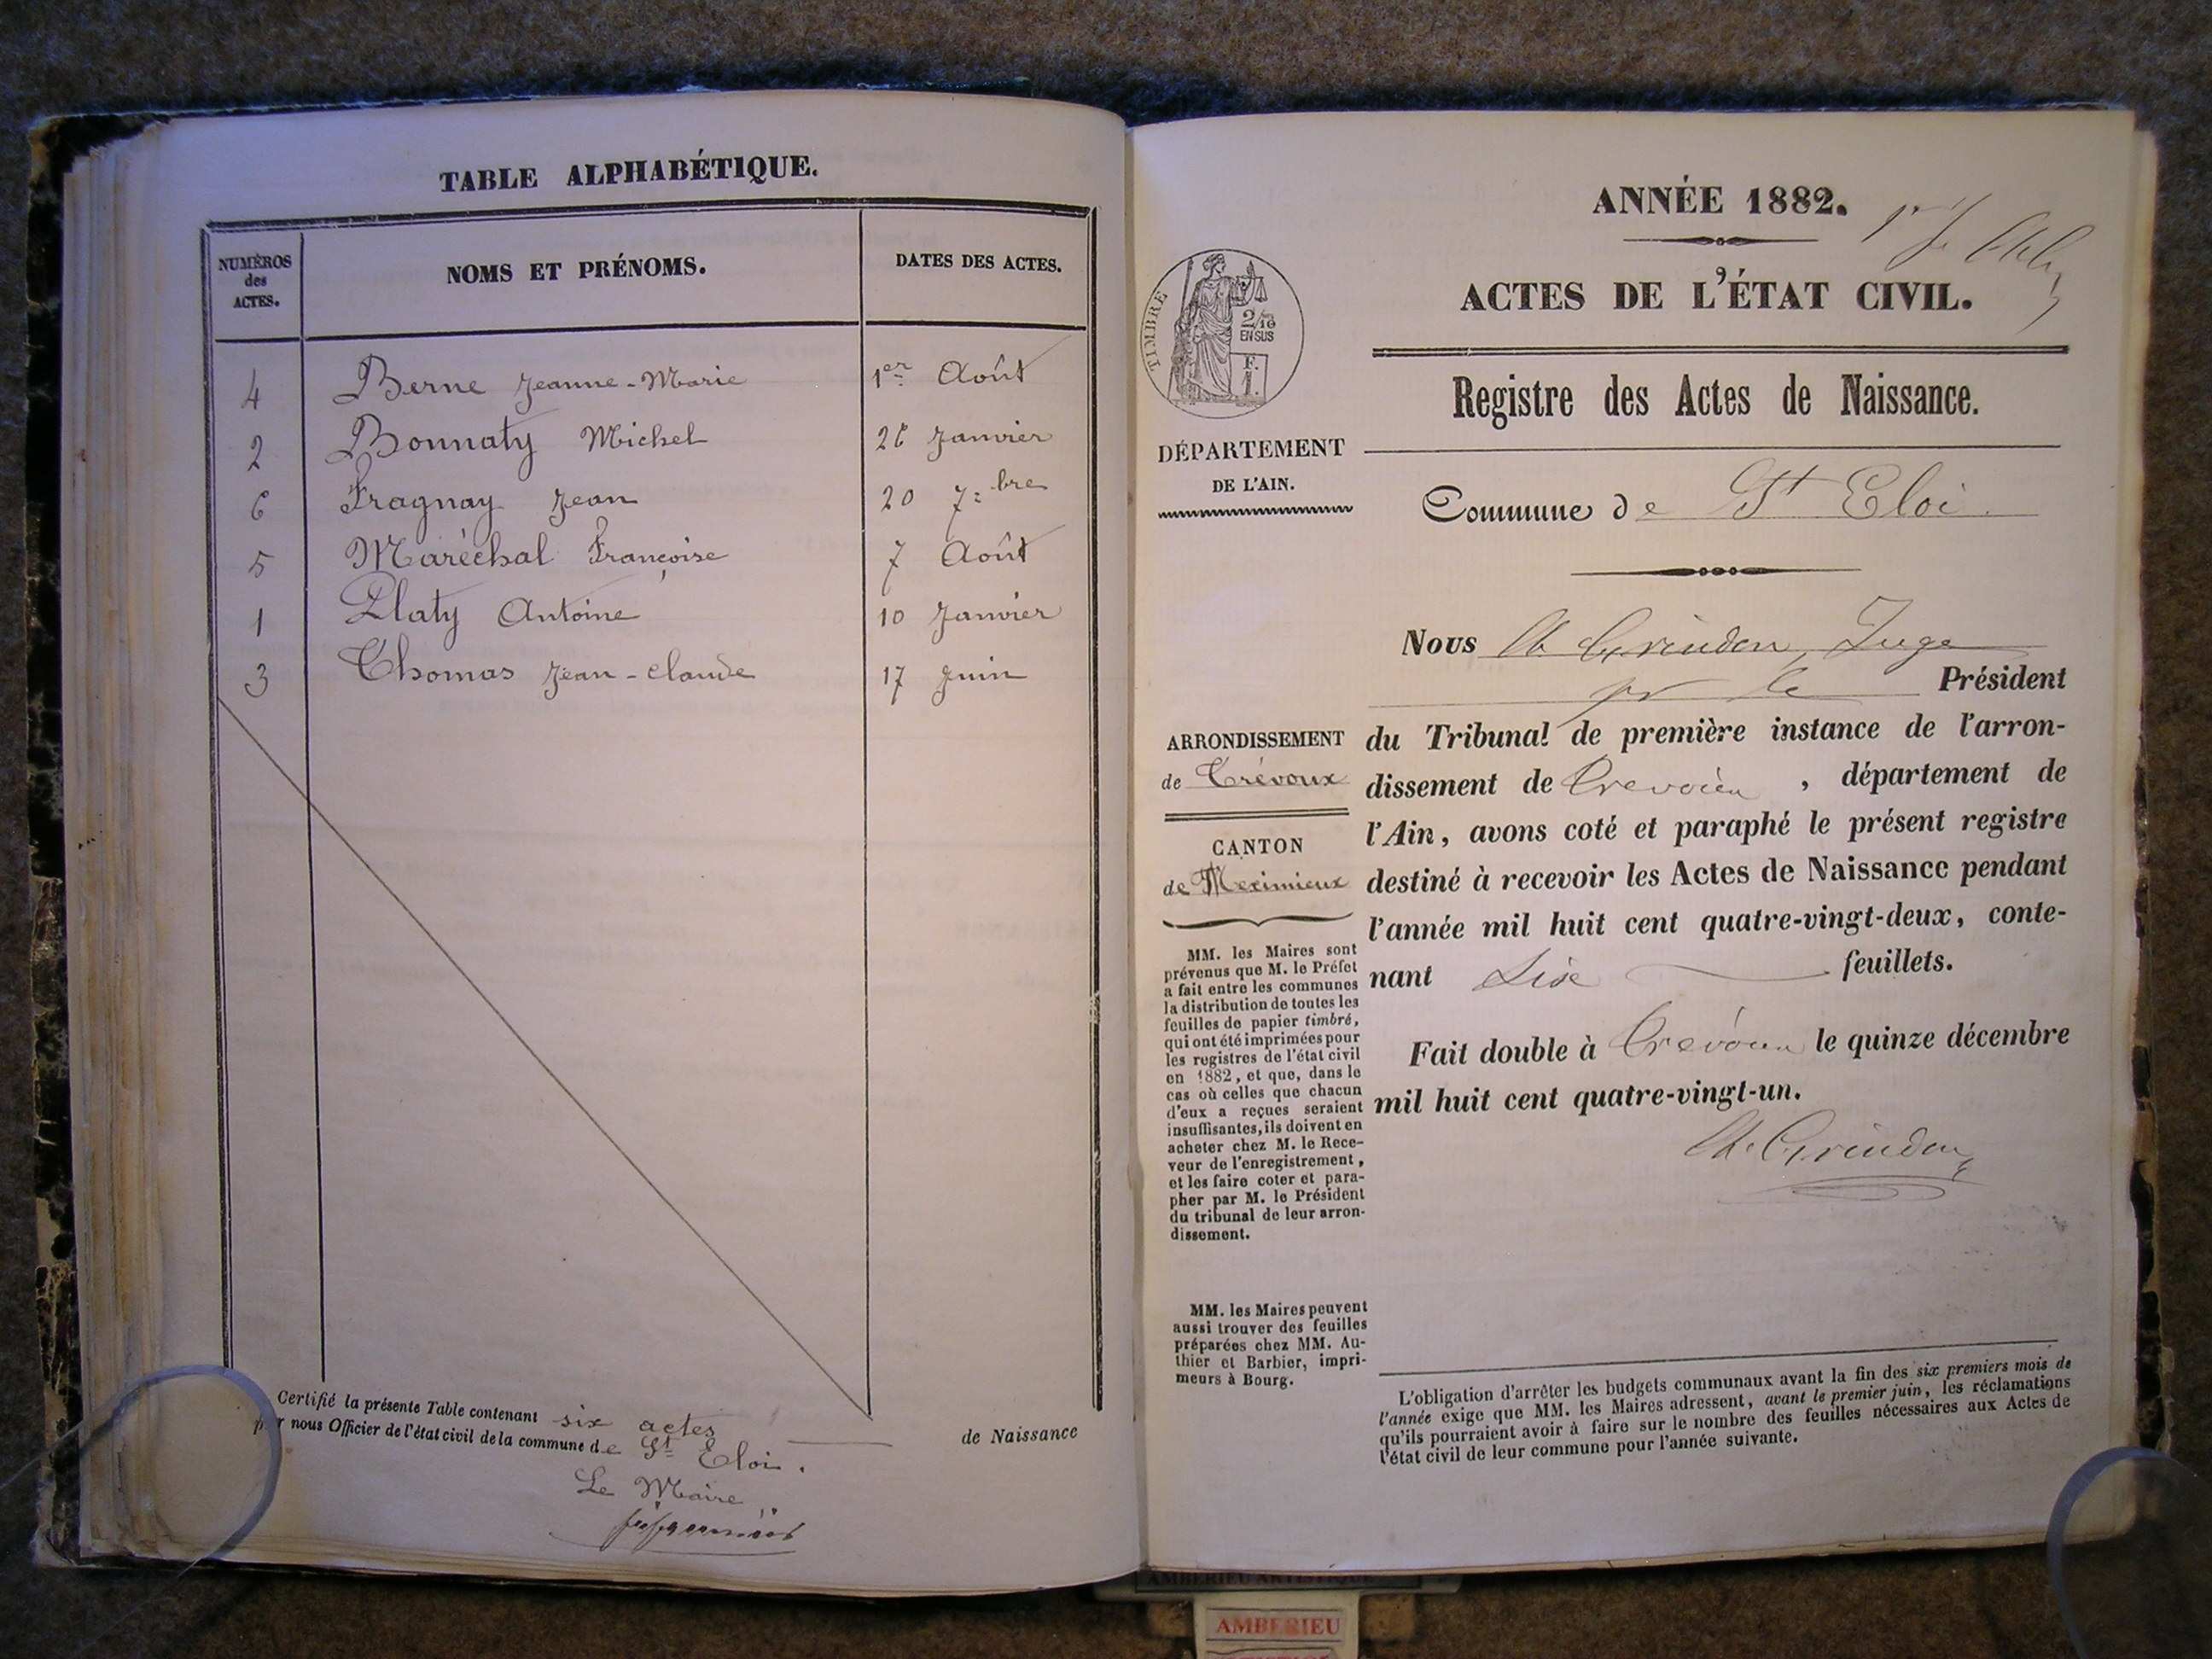 TABLE ALPHABÉTIQUE.
NUMÉROS
des
ACTES.
NOMS ET PRÉNOMS.
DATES DES ACTES.
4 Berne Jeanne-Marie 1er Août
2 Bonnaty Michel 26 Janvier
6 Fragnay Jean 20 7:bre
5 Maréchal Françoise 7 Août
1 Platy Antoine 10 Janvier
3 Thomas Jean-Claude 17 Juin
Certifié la présente Table contenant six actes de Naissance
par nous Officier de l'état civil de la commune de St Eloi.
Le Maire
ANNÉE 1882.
ACTES DE L'ÉTAT CIVIL.
TIMBRE
2/10
EN SUS
F.
1.
Registre des Actes de Naissance.
DÉPARTEMENT
DE L'AIN.
Commune de St Eloi.
Nous Ch Grindon, Juge
pr le Président
du Tribunal de première instance de l'arron-
dissement de Trevoux, département de
l'Ain, avons coté et paraphé le présent registre
destiné à recevoir les Actes de Naissance pendant
l'année mil huit cent quatre-vingt-deux, conte-
nant Six feuillets.
Fait double à Trévoux le quinze décembre
mil huit cent quatre-vingt-un.
Ch. Grindon
ARRONDISSEMENT
de Trévoux
CANTON
de Meximieux
MM. les Maires sont
prévenus que M. le Préfet
a fait entre les communes
la distribution de toutes les
feuilles de papier timbré,
qui ont été imprimées pour
les registres de l'état civil
en 1882, et que, dans le
cas où celles que chacun
d'eux a reçues seraient
insuffisantes, ils doivent en
acheter chez M. le Rece-
veur de l'enregistrement,
et les faire coter et para-
pher par M. le Président
du tribunal de leur arron-
dissement.
MM. les Maires peuvent
aussi trouver des feuilles
préparées chez MM. Au-
thier et Barbier, impri-
meurs à Bourg.
L'obligation d'arrêter les budgets communaux avant la fin des six premiers mois de
l'année exige que MM. les Maires adressent, avant le premier juin, les réclamations
qu'ils pourraient avoir à faire sur le nombre des feuilles nécessaires aux Actes de
l'état civil de leur commune pour l'année suivante.
AMBERIEU ARTISTIQUE
AMBERIEU